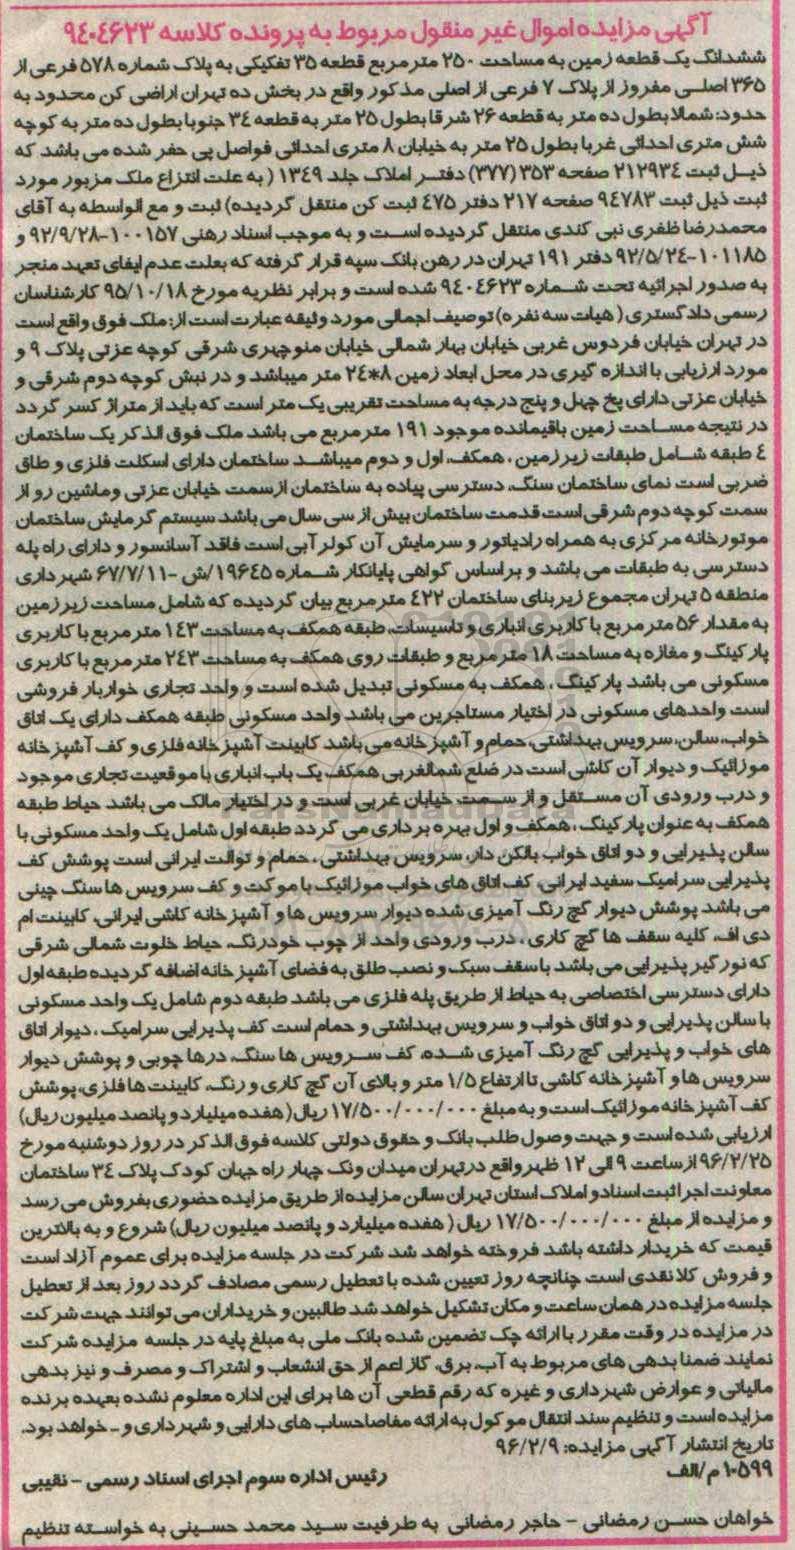 آگهی مزایده اموال غیر منقول مربوط به پرونده کلاسه ۹٤۰٤۶۲۳
ششدانگ یک قطعه زمین به مساحت ۲۵۰ مترمربع قطعه ۳۵ تفکیکی به پلاک شماره ۵۷۸ فرعی از
۳۶۵ اصلی مفروز از پلاک ۷ فرعی از اصلی مذکور واقع در بخش ده تهران اراضی کن محدود به
حدود: شمالا بطول ده متر به قطعه ۲۶ شرقا بطول ۲۵ متر به قطعه ۳٤ جنوبا بطول ده متر به کوچه
شش متری احداثی غربا بطول ۲۵ متر به خیابان ۸ متری احداثی فواصل پی حفر شده می باشد که
ذیل ثبت ۲۱۲۹۳٤ صفحه ۳۵۳ (۳۷۷) دفتر املاک جلد ۱۳٤۹ ( به علت انتزاع ملک مزبور مورد
ثبت ذیل ثبت ۹٤۷۸۳ صفحه ۲۱۷ دفتر ٤۷۵ ثبت کن منتقل گردیده) ثبت و مع الواسطه به آقای
محمدرضا ظفری نبی کندی منتقل گردیده است و به موجب اسناد رهنی ۱۰۰۱۵۷-۹۲/۹/۲۸ و
۱۰۱۱۸۵-۹۲/۵/۲٤ دفتر ۱۹۱ تهران در رهن بانک سپه قرار گرفته که بعلت عدم ایفای تعهد منجر
به صدور اجرائیه تحت شماره ۹٤۰٤۶۲۳ شده است و برابر نظریه مورخ ۹۵/۱۰/۱۸ کارشناسان
رسمی دادگستری ( هیات سه نفره) توصیف اجمالی مورد وثیقه عبارت است از: ملک فوق واقع است
در تهران خیابان فردوس غربی خیابان بهار شمالی خیابان منوچهری شرقی کوچه عزتی پلاک ۹ و
مورد ارزیابی با اندازه گیری در محل ابعاد زمین ۸*۲٤ متر میباشد و در نبش کوچه دوم شرقی و
خیابان عزتی دارای پخ چهل و پنج درجه به مساحت تقریبی یک متر است که باید از متراژ کسر گردد
در نتیجه مساحت زمین باقیمانده موجود ۱۹۱ مترمربع می باشد ملک فوق الذکر یک ساختمان
٤ طبقه شامل طبقات زیرزمین ، همکف، اول و دوم میباشد ساختمان دارای اسکلت فلزی و طاق
ضربی است نمای ساختمان سنگ، دسترسی پیاده به ساختمان ازسمت خیابان عزتی وماشین رو از
سمت کوچه دوم شرقی است قدمت ساختمان بیش از سی سال می باشد سیستم گرمایش ساختمان
موتورخانه مرکزی به همراه رادیاتور و سرمایش آن کولر آبی است فاقد آسانسور و دارای راه پله
دسترسی به طبقات می باشد و براساس گواهی پایانکار شماره ۱۹۶٤۵/ش -۶۷/۷/۱۱ شهرداری
منطقه ۵ تهران مجموع زیربنای ساختمان ٤۲۲ مترمربع بیان گردیده که شامل مساحت زیرزمین
به مقدار ۵۶ مترمربع با کاربری انباری و تاسیسات، طبقه همکف به مساحت ۱٤۳ مترمربع با کاربری
پارکینگ و مغازه به مساحت ۱۸ مترمربع و طبقات روی همکف به مساحت ۲٤۳ مترمربع با کاربری
مسکونی می باشد پارکینگ ، همکف به مسکونی تبدیل شده است و واحد تجاری خواربار فروشی
است واحدهای مسکونی در اختیار مستاجرین می باشد واحد مسکونی طبقه همکف دارای یک اتاق
خواب، سالن، سرویس بهداشتی، حمام و آشپزخانه می باشد کابینت آشپزخانه فلزی و کف آشپزخانه
موزائیک و دیوار آن کاشی است در ضلع شمالغربی همکف یک باب انباری با موقعیت تجاری موجود
و درب ورودی آن مستقل و از سمت خیابان غربی است و در اختیار مالک می باشد حیاط طبقه
همکف به عنوان پارکینگ ، همکف و اول بهره برداری می گردد طبقه اول شامل یک واحد مسکونی با
سالن پذیرایی و دو اتاق خواب بالکن دار، سرویس بهداشتی ، حمام و توالت ایرانی است پوشش کف
پذیرایی سرامیک سفید ایرانی، کف اتاق های خواب موزائیک با موکت و کف سرویس ها سنگ چینی
می باشد پوشش دیوار گچ رنگ آمیزی شده دیوار سرویس ها و آشپزخانه کاشی ایرانی، کابینت ام
دی اف، کلیه سقف ها گچ کاری ، درب ورودی واحد از چوب خودرنگ، حیاط خلوت شمالی شرقی
که نورگیر پذیرایی می باشد با سقف سبک و نصب طلق به فضای آشپزخانه اضافه گردیده طبقه اول
دارای دسترسی اختصاصی به حیاط از طریق پله فلزی می باشد طبقه دوم شامل یک واحد مسکونی
با سالن پذیرایی و دو اتاق خواب و سرویس بهداشتی و حمام است کف پذیرایی سرامیک ، دیوار اتاق
های خواب و پذیرایی گچ رنگ آمیزی شده، کف سرویس ها سنگ، درها چوبی و پوشش دیوار
سرویس ها و آشپزخانه کاشی تا ارتفاع ۱/۵ متر و بالای آن گچ کاری و رنگ، کابینت ها فلزی، پوشش
کف آشپزخانه موزائیک است و به مبلغ ۱۷/۵۰۰/۰۰۰/۰۰۰ ریال( هفده میلیارد و پانصد میلیون ریال)
ارزیابی شده است و جهت وصول طلب بانک و حقوق دولتی کلاسه فوق الذکر در روز دوشنبه مورخ
۹۶/۲/۲۵ ازساعت ۹ الی ۱۲ ظهر واقع درتهران میدان ونک چهار راه جهان کودک پلاک ۳٤ ساختمان
معاونت اجرا ثبت اسناد و املاک استان تهران سالن مزایده از طریق مزایده حضوری بفروش می رسد
و مزایده از مبلغ ۱۷/۵۰۰/۰۰۰/۰۰۰ ریال( هفده میلیارد و پانصد میلیون ریال) شروع و به بالاترین
قیمت که خریدار داشته باشد فروخته خواهد شد شرکت در جلسه مزایده برای عموم آزاد است
و فروش کلا نقدی است چنانچه روز تعیین شده با تعطیل رسمی مصادف گردد روز بعد از تعطیل
جلسه مزایده در همان ساعت و مکان تشکیل خواهد شد طالبین و خریداران می توانند جهت شرکت
در مزایده در وقت مقرر با ارائه چک تضمین شده بانک ملی به مبلغ پایه در جلسه مزایده شرکت
نمایند ضمنا بدهی های مربوط به آب، برق، گاز اعم از حق انشعاب و اشتراک و مصرف و نیز بدهی
مالیاتی و عوارض شهرداری و غیره که رقم قطعی آن ها برای این اداره معلوم نشده بعهده برنده
مزایده است و تنظیم سند انتقال موکول به ارائه مفاصاحساب های دارایی و شهرداری و .. خواهد بود.
تاریخ انتشار آگهی مزایده: ۹۶/۲/۹
۱۰۵۹۹ م/الف رئیس اداره سوم اجرای اسناد رسمی - نقیبی
خواهان حسن رمضانی - حاجر رمضانی به طرفیت سید محمد حسینی به خواسته تنظیم